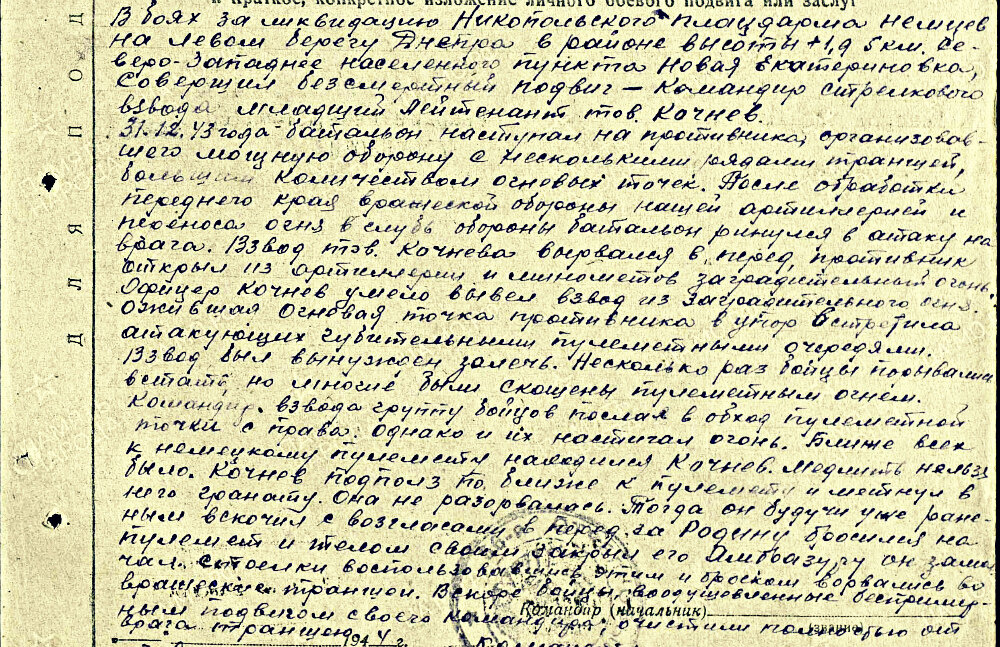 и краткое, конкретное изложение личного боевого подвига или заслуг
В боях за ликвидацию Никопольского плацдарма немцев
на левом берегу Днепра в районе высоты +1,9 5 км. Се-
веро-Западнее населенного пункта Новая Екатериновка,
Совершил безсмертный подвиг – Командир стрелкового
взвода младший Лейтенант тов. Кочнев.
31.12.43 года батальон наступал на противника, организовав-
шего мощную оборону с несколькими рядами траншей,
большим количеством огневых точек. После обработки
переднего края вражеской обороны нашей артиллерией и
переноса огня в глубь обороны батальон ринулся в атаку на
врага. Взвод тов. Кочнева вырвался в перед, противник
открыл из артиллерии и минометов заградительный огонь.
Офицер Кочнев умело вывел взвод из заградительного огня.
Ожившая огневая точка противника в упор встретила
атакующих губительными пулеметными очередями.
Взвод был вынужден залечь. Несколько раз бойцы порывались
встать, но многие были скошены пулеметным огнем.
Командир взвода группу бойцов послал в обход пулеметной
точки с права. Однако и их настигал огонь. Ближе всех
к немецкому пулемету находился Кочнев. Медлить нельзя
было. Кочнев подполз по ближе к пулемету и метнул в
него гранату. Она не разорвалась. Тогда он будучи уже ране-
ным вскочил с возгласами в перед за Родину бросился на
пулемет и телом своим закрыл его Амбразуру он замол
чал. Стрелки воспользовавшись этим и броском ворвались во
вражеские траншеи. Вскоре бойцы, воодушевленные беспример-
ным подвигом своего командира, очистили полностью от
врага траншею
Командир (начальник)
(звание)
194 4 г.
ДЛЯ ПОД